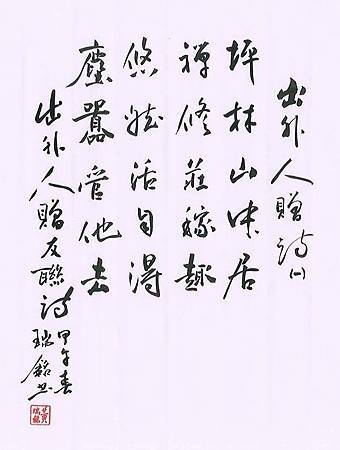 出外人贈詩(一)
坪林山居
禪修莊稼趣
悠然活自得
塵囂管他去
出外人贈反聯詩
甲午春
瑞銘書